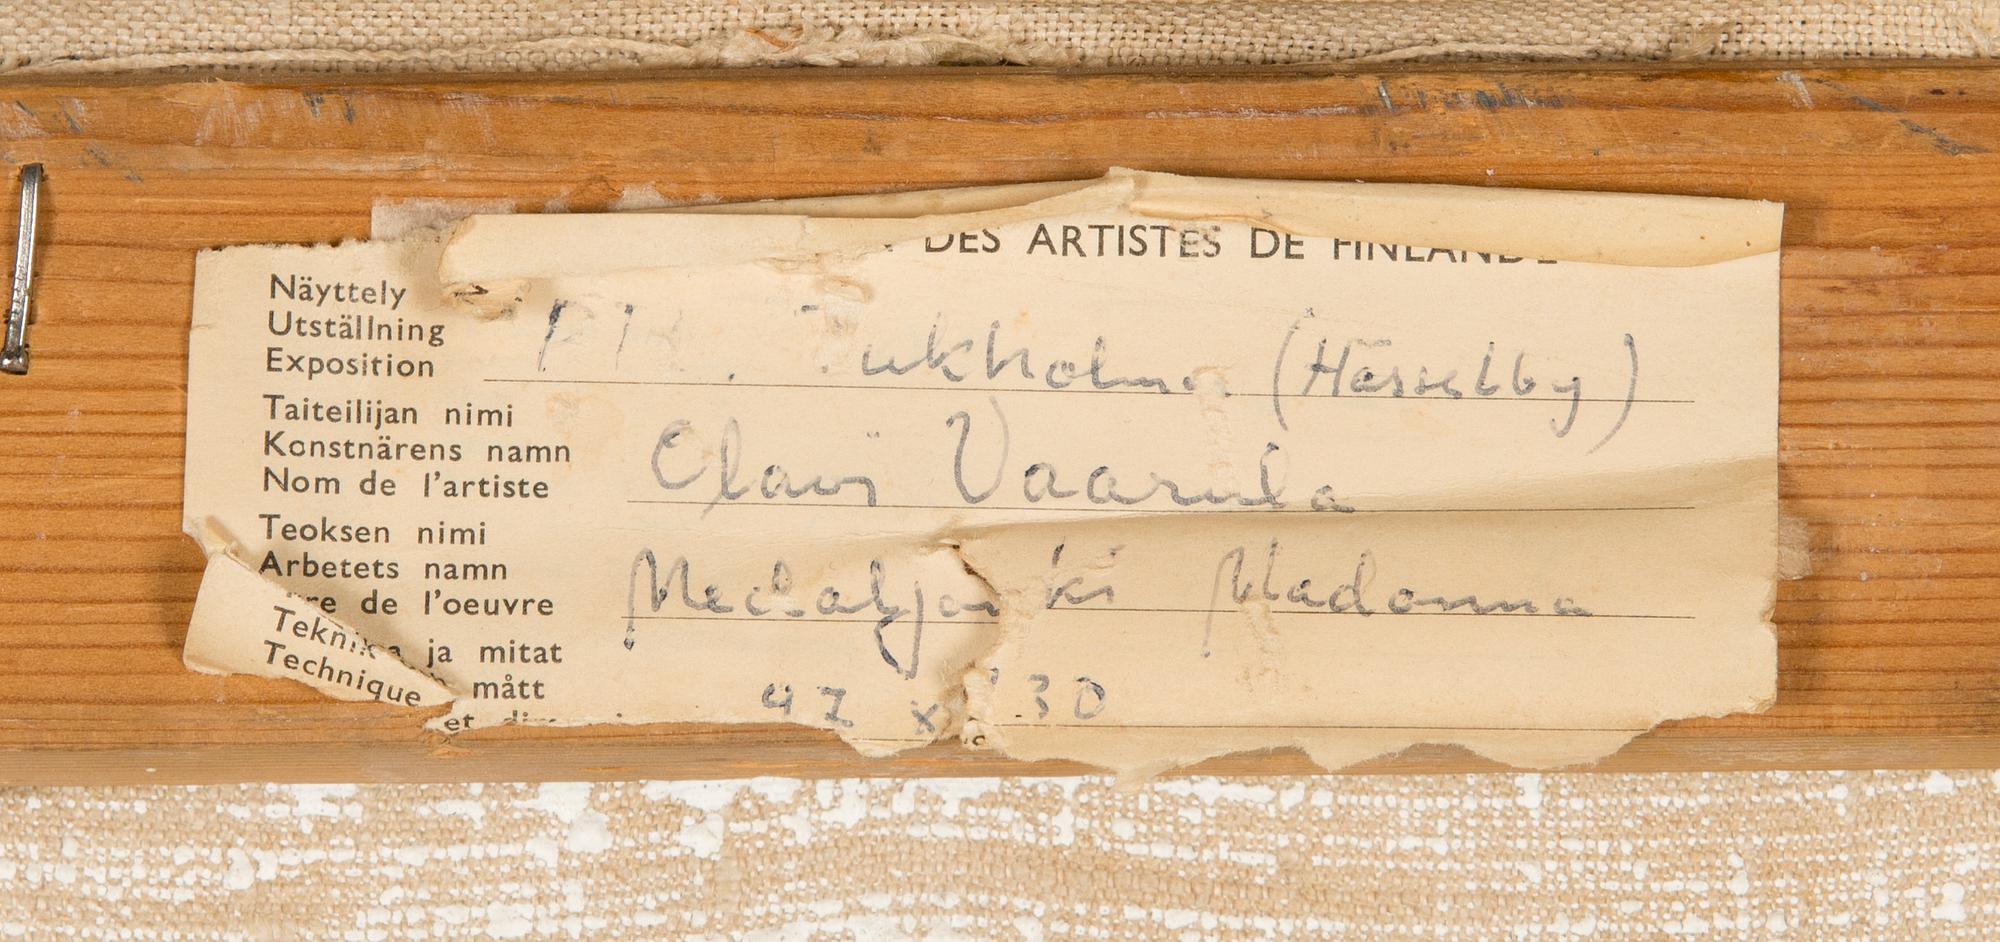 DES ARTISTES DE FINLANDE
Näyttely
Utställning
Exposition
ukholma (Hässelby)
Taiteilijan nimi
Konstnärens namn
Nom de l'artiste
Olavi Vaarula
Teoksen nimi
Arbetets namn
de l'oeuvre
Madonna
Tekniikka ja mitat
Technique
mått
et
97 x 130